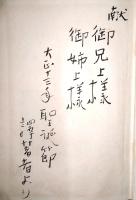 献
御兄上様
御姉上様
大正十三年 聖誕節
著者より